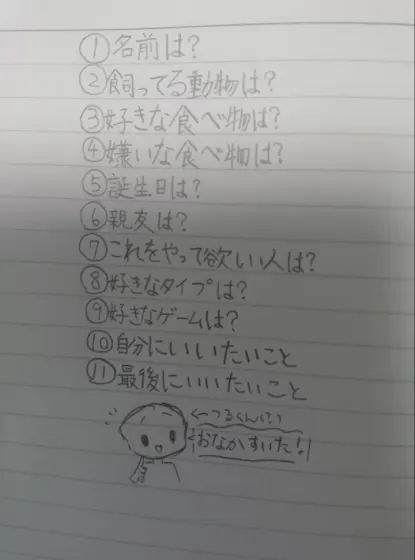 ①名前は?
②飼ってる動物は?
③好きな食べ物は?
④嫌いな食べ物は?
⑤誕生日は?
⑥親友は?
⑦これをやって欲いい人は?
⑧好きなタイプは?
⑨好きなゲームは?
⑩自分にいいたいこと
⑪最後にいいたいこと
←つるくん!?
おなかすいた!